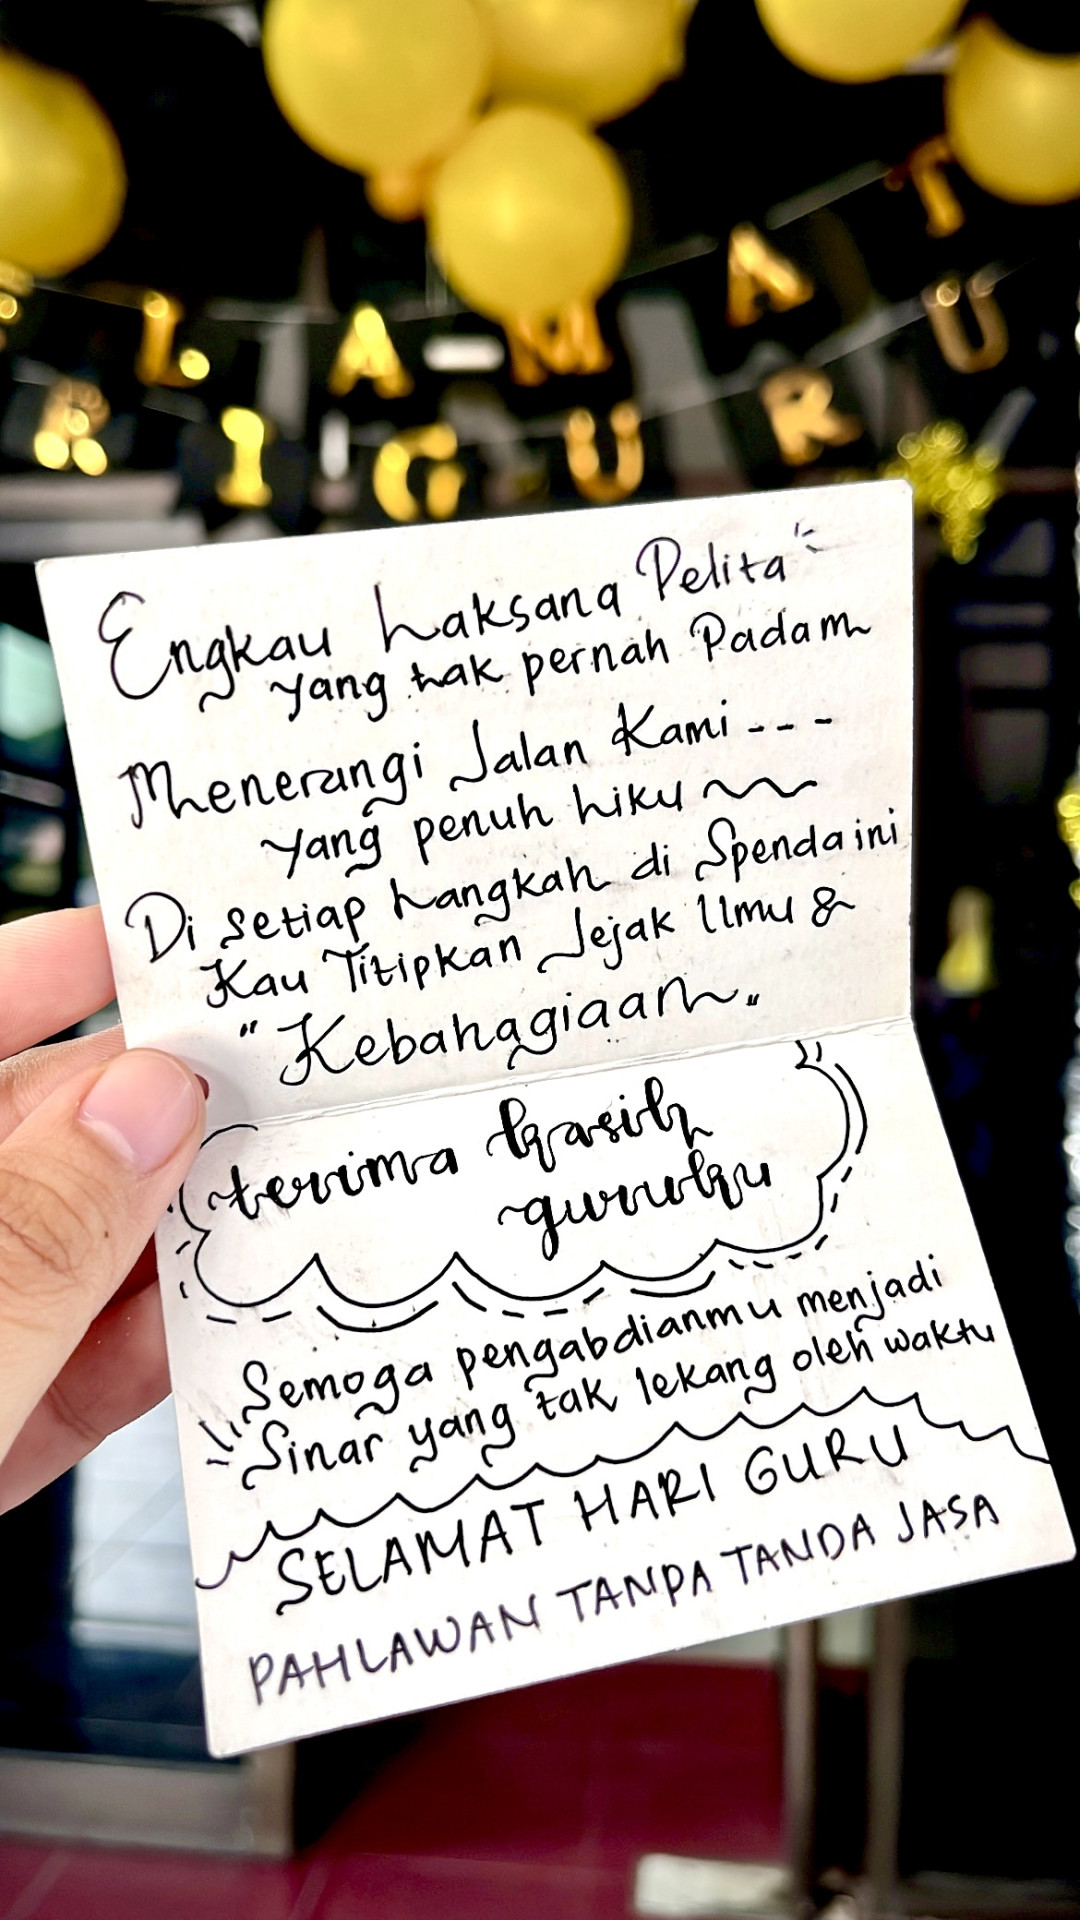 LAMAT
RI GURU
Engkau Laksana Pelita
yang tak pernah Padam
Menerangi Jalan Kami ---
yang penuh liku
Di setiap Langkah di Spenda ini
Kau Titipkan Jejak Ilmu &
"Kebahagiaan"
terima kasih
guruku
Semoga pengabdianmu menjadi
Sinar yang tak lekang oleh waktu
SELAMAT HARI GURU
PAHLAWAN TANPA TANDA JASA